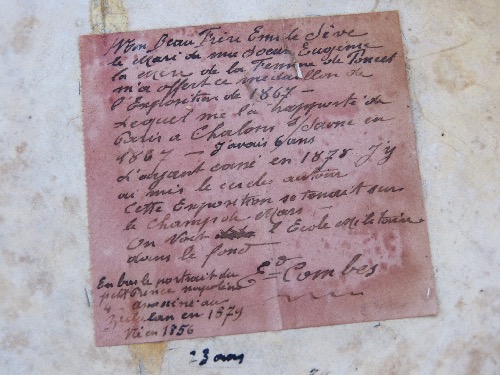 Mon Beau Frère Emile Sève
le Mari de ma Soeur Eugénie
la Mère de la Femme de Poncet
m'a offert ce médaillon de
l'Exposition de 1867 —
Lequel me l'a rapporté de
Paris a Chalons s/Saone en
1867 — J'avais 6 ans
L'ayant cassé en 1878 J'y
ai mis le cercle autour
Cette Exposition se tenait sur
le Champ de Mars
On Voit l'Ecole Militaire
dans le fond
Ed Combes
En bas le portrait du
petit Prince napoléon
4 assassiné au
Zululan en 1879
Né en 1856
23 ans